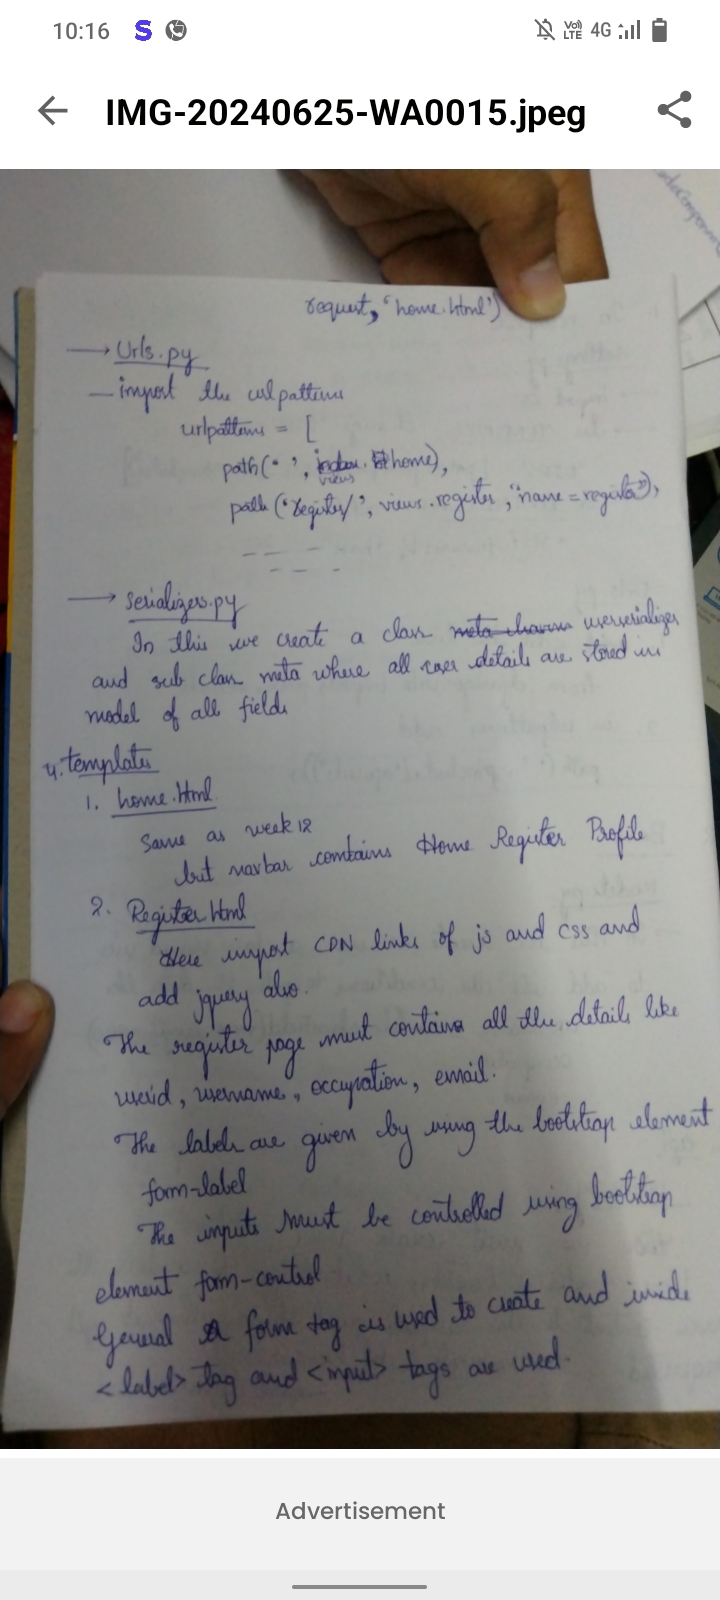 10:16 S Vo) LTE 4G
IMG-20240625-WA0015.jpeg
request, 'home.html')
→ Urls.py
— import the urlpatterns
urlpatterns = [
path(' ', views.home),
path('register/', views.register, "name = register"),
→ serializers.py
In this we create a class userserializer
and sub class meta where all user details are stored in
model of all fields
4. templates
1. home.html
Same as week 12
but navbar contains Home Register Profile
2. Register.html
Here import CDN links of js and css and
add jquery also.
The register page must contains all the details like
userid, username, occupation, email.
The labels are given by using the bootstrap element
form-label
The inputs must be controlled using bootstrap
element form-control
General form tag is used to create and inside
<label> tag and <input> tags are used.
Advertisement